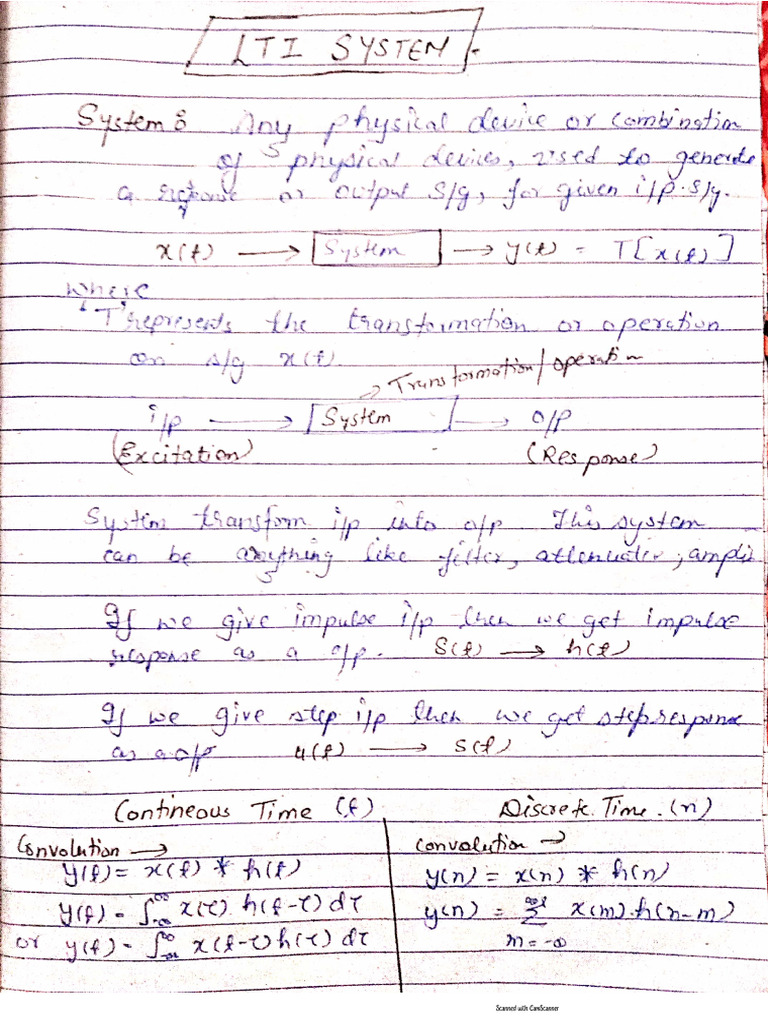 LTI SYSTEM
System : Any physical device or combination
of physical devices, used to generate
a response or output s/g, for given i/p s/g.
x(t) → System → y(t) = T[x(t)]
where
'T' represents the transformation or operation
on s/g x(t)
→ Transformation/operation
i/p → System → o/p
(Excitation) (Response)
System transform i/p into o/p This system
can be anything like filter, attenuater, ampli
If we give impulse i/p then we get impulse
response as a o/p. δ(t) → h(t)
If we give step i/p then we get step response
as a o/p u(t) → s(t)
Contineous Time (t) Discrete Time (n)
Convolution → Convolution →
y(t) = x(t) * h(t) y(n) = x(n) * h(n)
y(t) = ∫_{-∞}^{∞} x(τ) h(t-τ) dτ y(n) = Σ_{m=-∞}^{∞} x(m).h(n-m)
or y(t) = ∫_{-∞}^{∞} x(t-τ) h(τ) dτ
Scanned with CamScanner